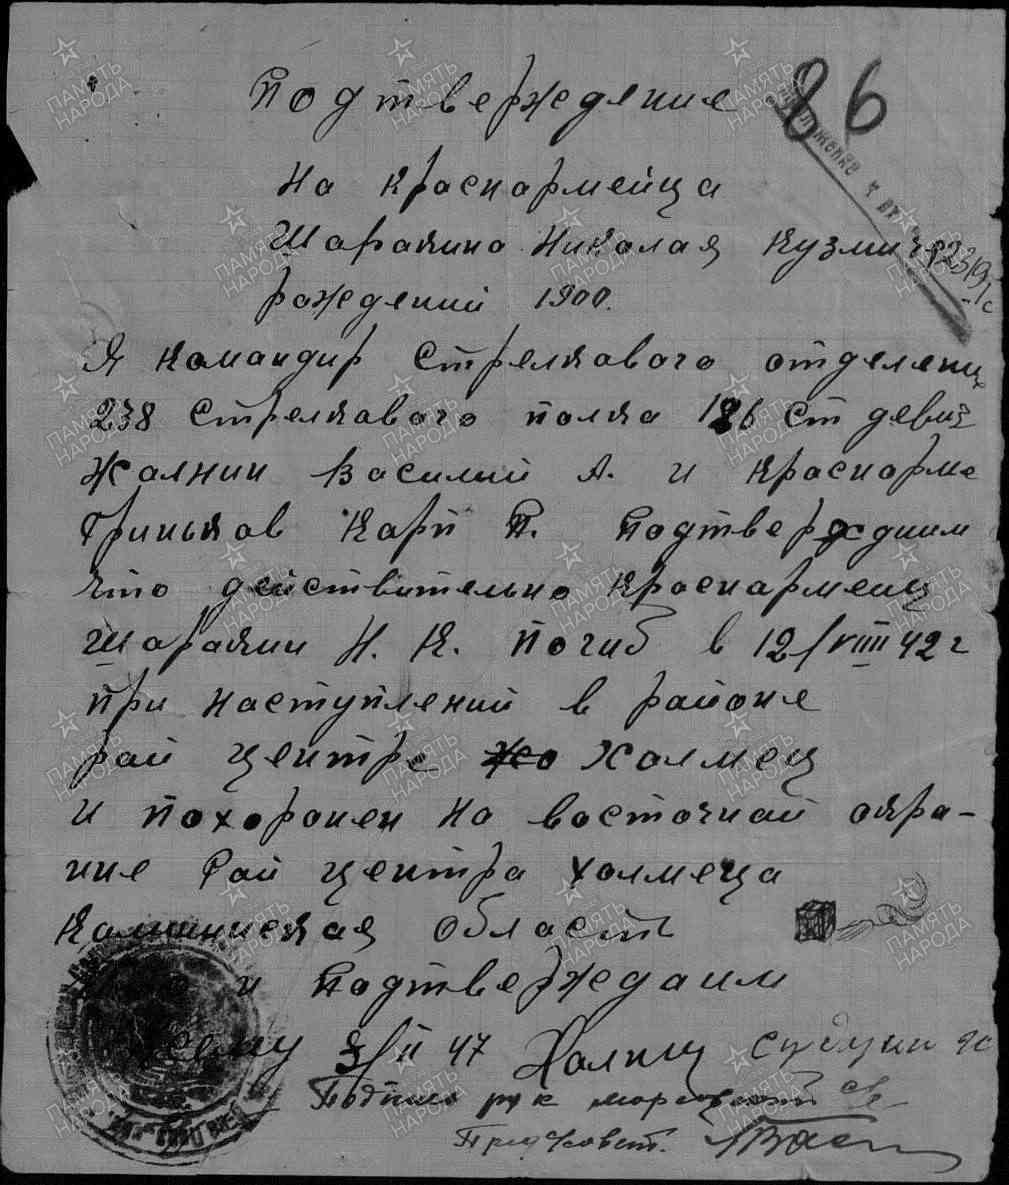 Подтвержедение
86
на краснармейца
Шаракина Николая Кузмича
рождений 1900.
Я командир Стрелкового отделени
238 Стрелкавого полка 186 Ст девиз
Жалнин Василий А. и краснарме
Гриньков Карп П. Подтверждиим
что действительно краснармеец
Шаракин Н. К. погиб в 12/VIII 42 г
при наступлений в районе
рай центре Холмец
и похоронен на восточнай окра-
ине Рай центра Холмеца
Калининская област
и Подтвержедаим
3/II 47
Подпись рук
Пред Совет.
ПАМЯТЬ НАРОДА